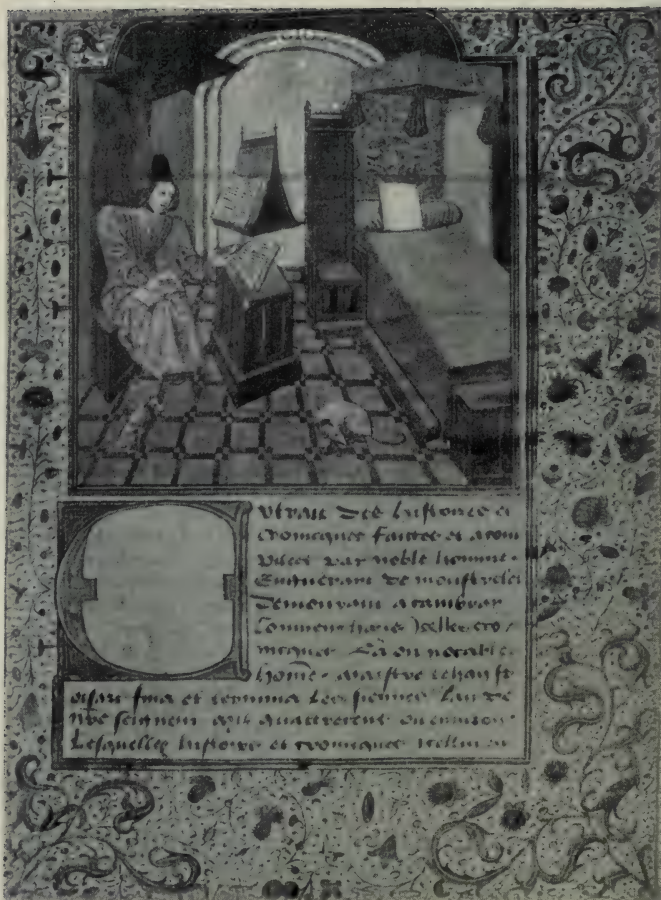 xtrait des histoires et
croniques faictes et acom
plies par noble homme
Enguerant de moustrelet
Demourant a cambray
Commenchans Jcelles cro
nicques La ou notable
home maistre Jehan fr
oissart fina et termina les siennes Lan de
nre seigneur mil quattrecens ou environ
Lesquelles histoires et croniques